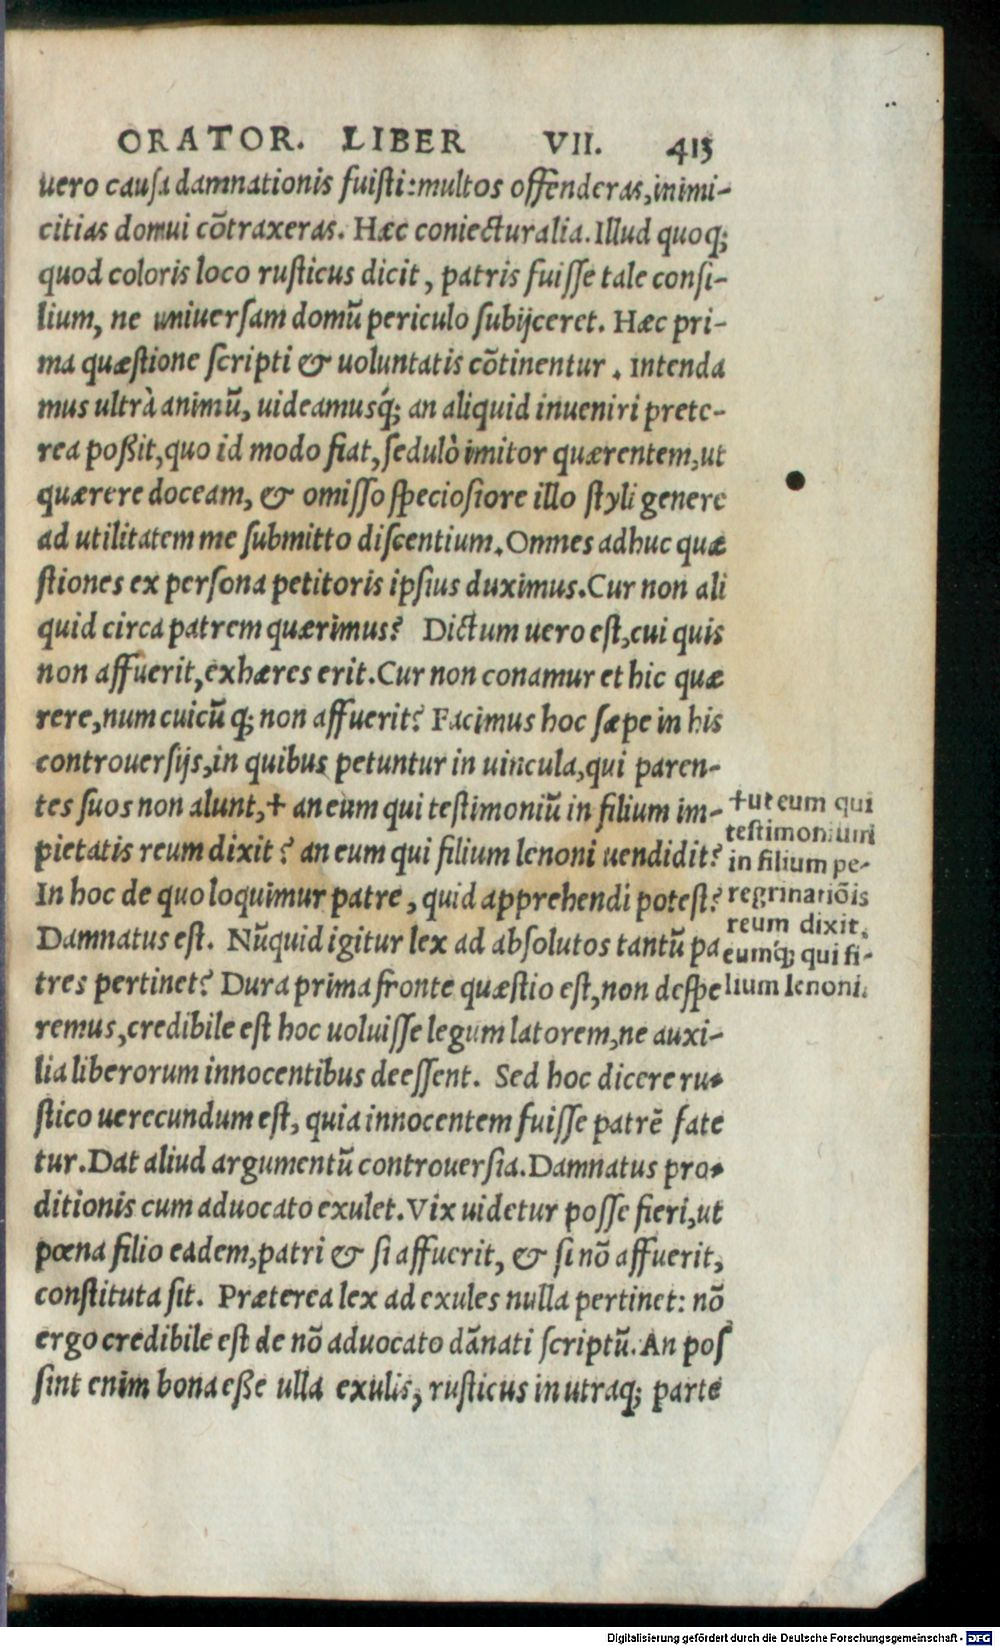 ORATOR. LIBER VII. 413
uero causa damnationis fuisti: multos offenderas, inimi-
citias domui cõtraxeras. Hæc coniecturalia. Illud quoq;
quod coloris loco rusticus dicit, patris fuisse tale consi-
lium, ne uniuersam domũ periculo subijceret. Hæc pri-
ma quæstione scripti & uoluntatis cõtinentur. Intenda
mus ultrà animũ, uideamusq́; an aliquid inueniri prete-
rea poßit, quo id modo fiat, sedulò imitor quærentem, ut
quærere doceam, & omisso speciosiore illo styli genere
ad utilitatem me submitto discentium. Omnes adhuc quæ
stiones ex persona petitoris ipsius duximus. Cur non ali
quid circa patrem quærimus? Dictum uero est, cui quis
non affuerit, exhæres erit. Cur non conamur et hic quæ
rere, num cuicũ q; non affuerit? Facimus hoc sæpe in his
controuersijs, in quibus petuntur in uincula, qui paren-
tes suos non alunt, + an eum qui testimoniũ in filium im-
pietatis reum dixit? an eum qui filium lenoni uendidit?
In hoc de quo loquimur patre, quid apprehendi potest?
Damnatus est. Nũquid igitur lex ad absolutos tantũ pa
tres pertinet? Dura prima fronte quæstio est, non despe
remus, credibile est hoc uoluisse legum latorem, ne auxi-
lia liberorum innocentibus deessent. Sed hoc dicere ru-
stico uerecundum est, quia innocentem fuisse patrẽ fate
tur. Dat aliud argumentũ controuersia. Damnatus pro-
ditionis cum aduocato exulet. Vix uidetur posse fieri, ut
pœna filio eadem, patri & si affuerit, & si nõ affuerit,
constituta sit. Præterea lex ad exules nulla pertinet: nõ
ergo credibile est de nõ aduocato dãnati scriptũ. An pos
sint enim bona eße ulla exulis, rusticus in utraq; parte
+ut eum qui
testimonium
in filium pe-
regrinatiõis
reum dixit,
eumq́; qui fi-
lium lenoni.
Digitalisierung gefördert durch die Deutsche Forschungsgemeinschaft - DFG